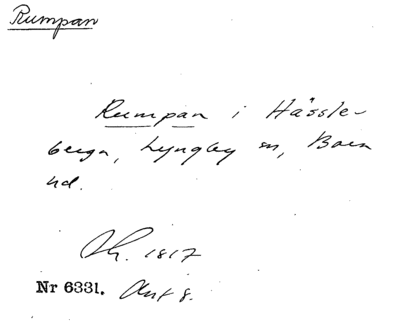 Rumpan
Rumpan i Hässle-
berga, Lyngby sn, Bara
hd.
Sk. 1817
Nr 6331. Akt 8.